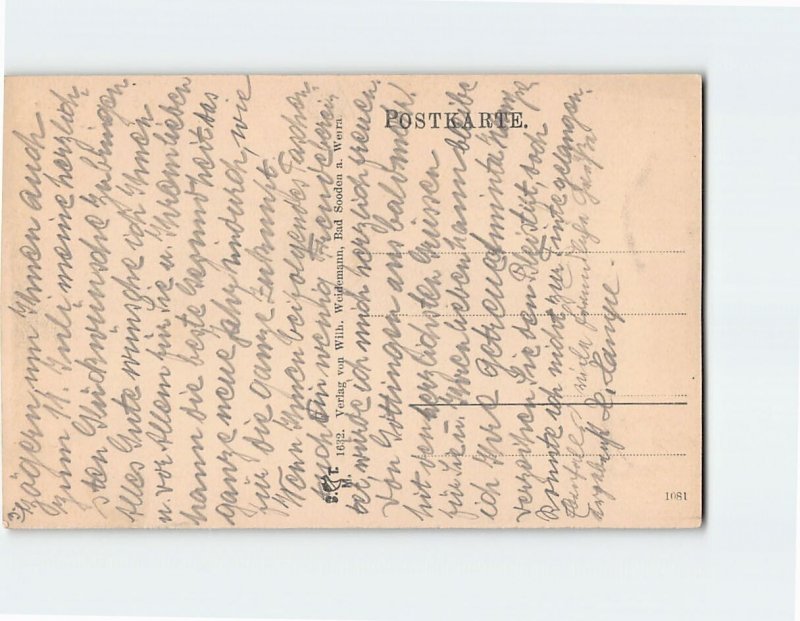 zögern, um Ihnen auch
zum 11. Juli meine herzlich-
sten Glückwünsche zu bringen.
Alles Gute wünsche ich Ihnen
u. vor Allem für Sie u. Ihren lieben
Mann die beste Gesundheit das
ganze neue Jahr hindurch, wie
für die ganze Zukunft.
Wenn Ihnen beifolgendes Taschen-
tuch ein wenig Freude berei-
tet, würde ich mich herzlich freuen.
Von Göttingen aus bald mehr.
Mit den herzlichsten Grüssen
für Sie u. Ihren lieben Mann bleibe
ich Ihre getreue
verzeihen Sie den Bleistift, doch
konnte ich nicht zur Tinte gelangen.
Ebenfalls viele freundliche Grüße
H. Lange
POSTKARTE.
1632. Verlag von Wilh. Weidemann, Bad Sooden a. Werra.
1081